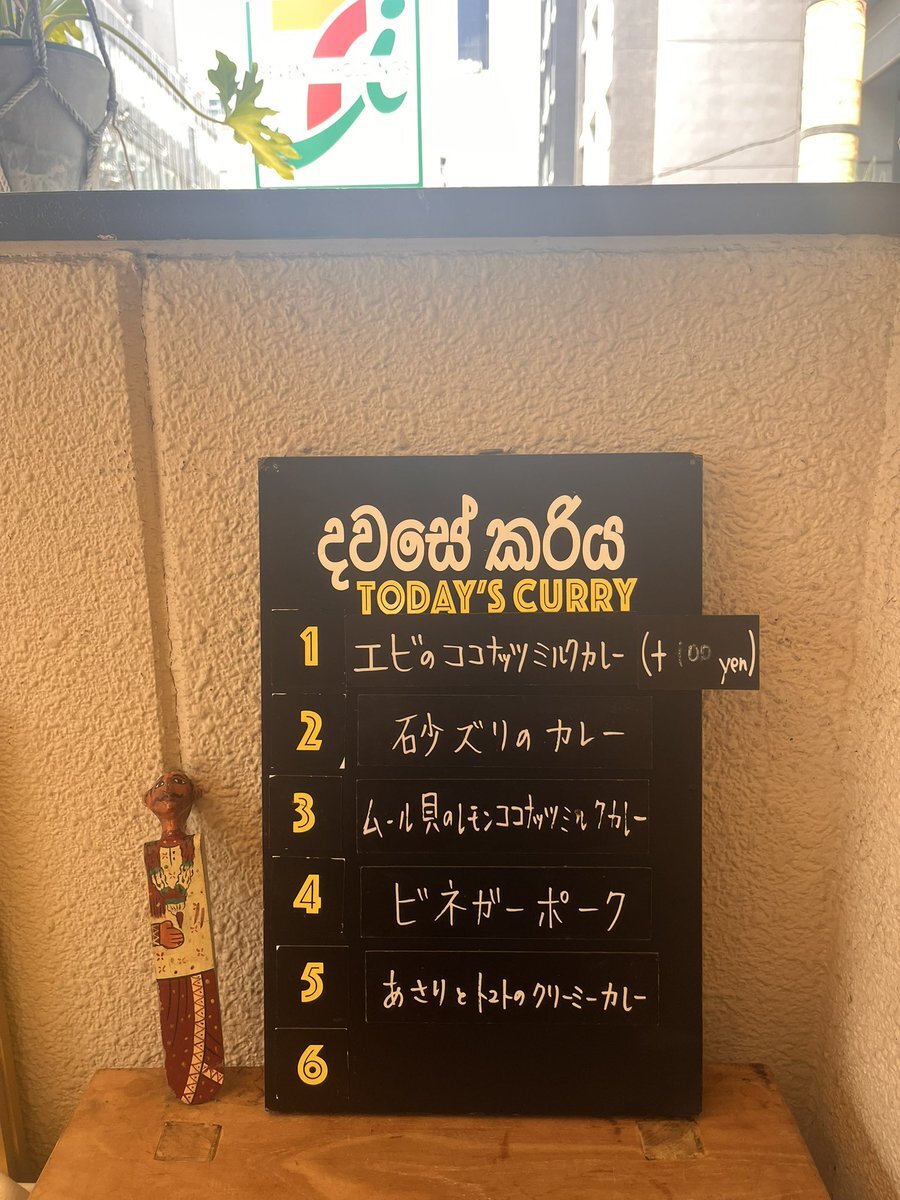 දවසේ කරිය
TODAY'S CURRY
1 エビのココナッツミルクカレー (+100 yen)
2 石少ズリのカレー
3 ムール貝のレモンココナッツミルクカレー
4 ビネガーポーク
5 あさりとトマトのクリーミーカレー
6